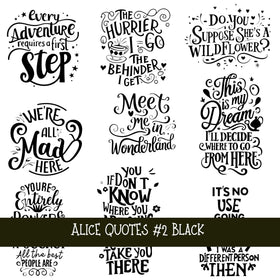 Every
Adventure
requires a first
Step
THE
HURRIER
I GO
THE
BEHINDER
I GET
DO YOU
SUPPOSE SHE'S A
WILDFLOWER?
WE'RE
ALL
Mad
HERE
Meet
me in
Wonderland
This
is my
Dream
I'LL DECIDE
WHERE TO GO
FROM HERE
YOU'RE
Entirely
YOU
IF DON'T
KNOW
WHERE YOU
IT'S NO
USE
GOING
ALICE QUOTES #2 BLACK
All the best
PEOPLE ARE
TAKE YOU
THERE
I WAS A
DIFFERENT PERSON
THEN